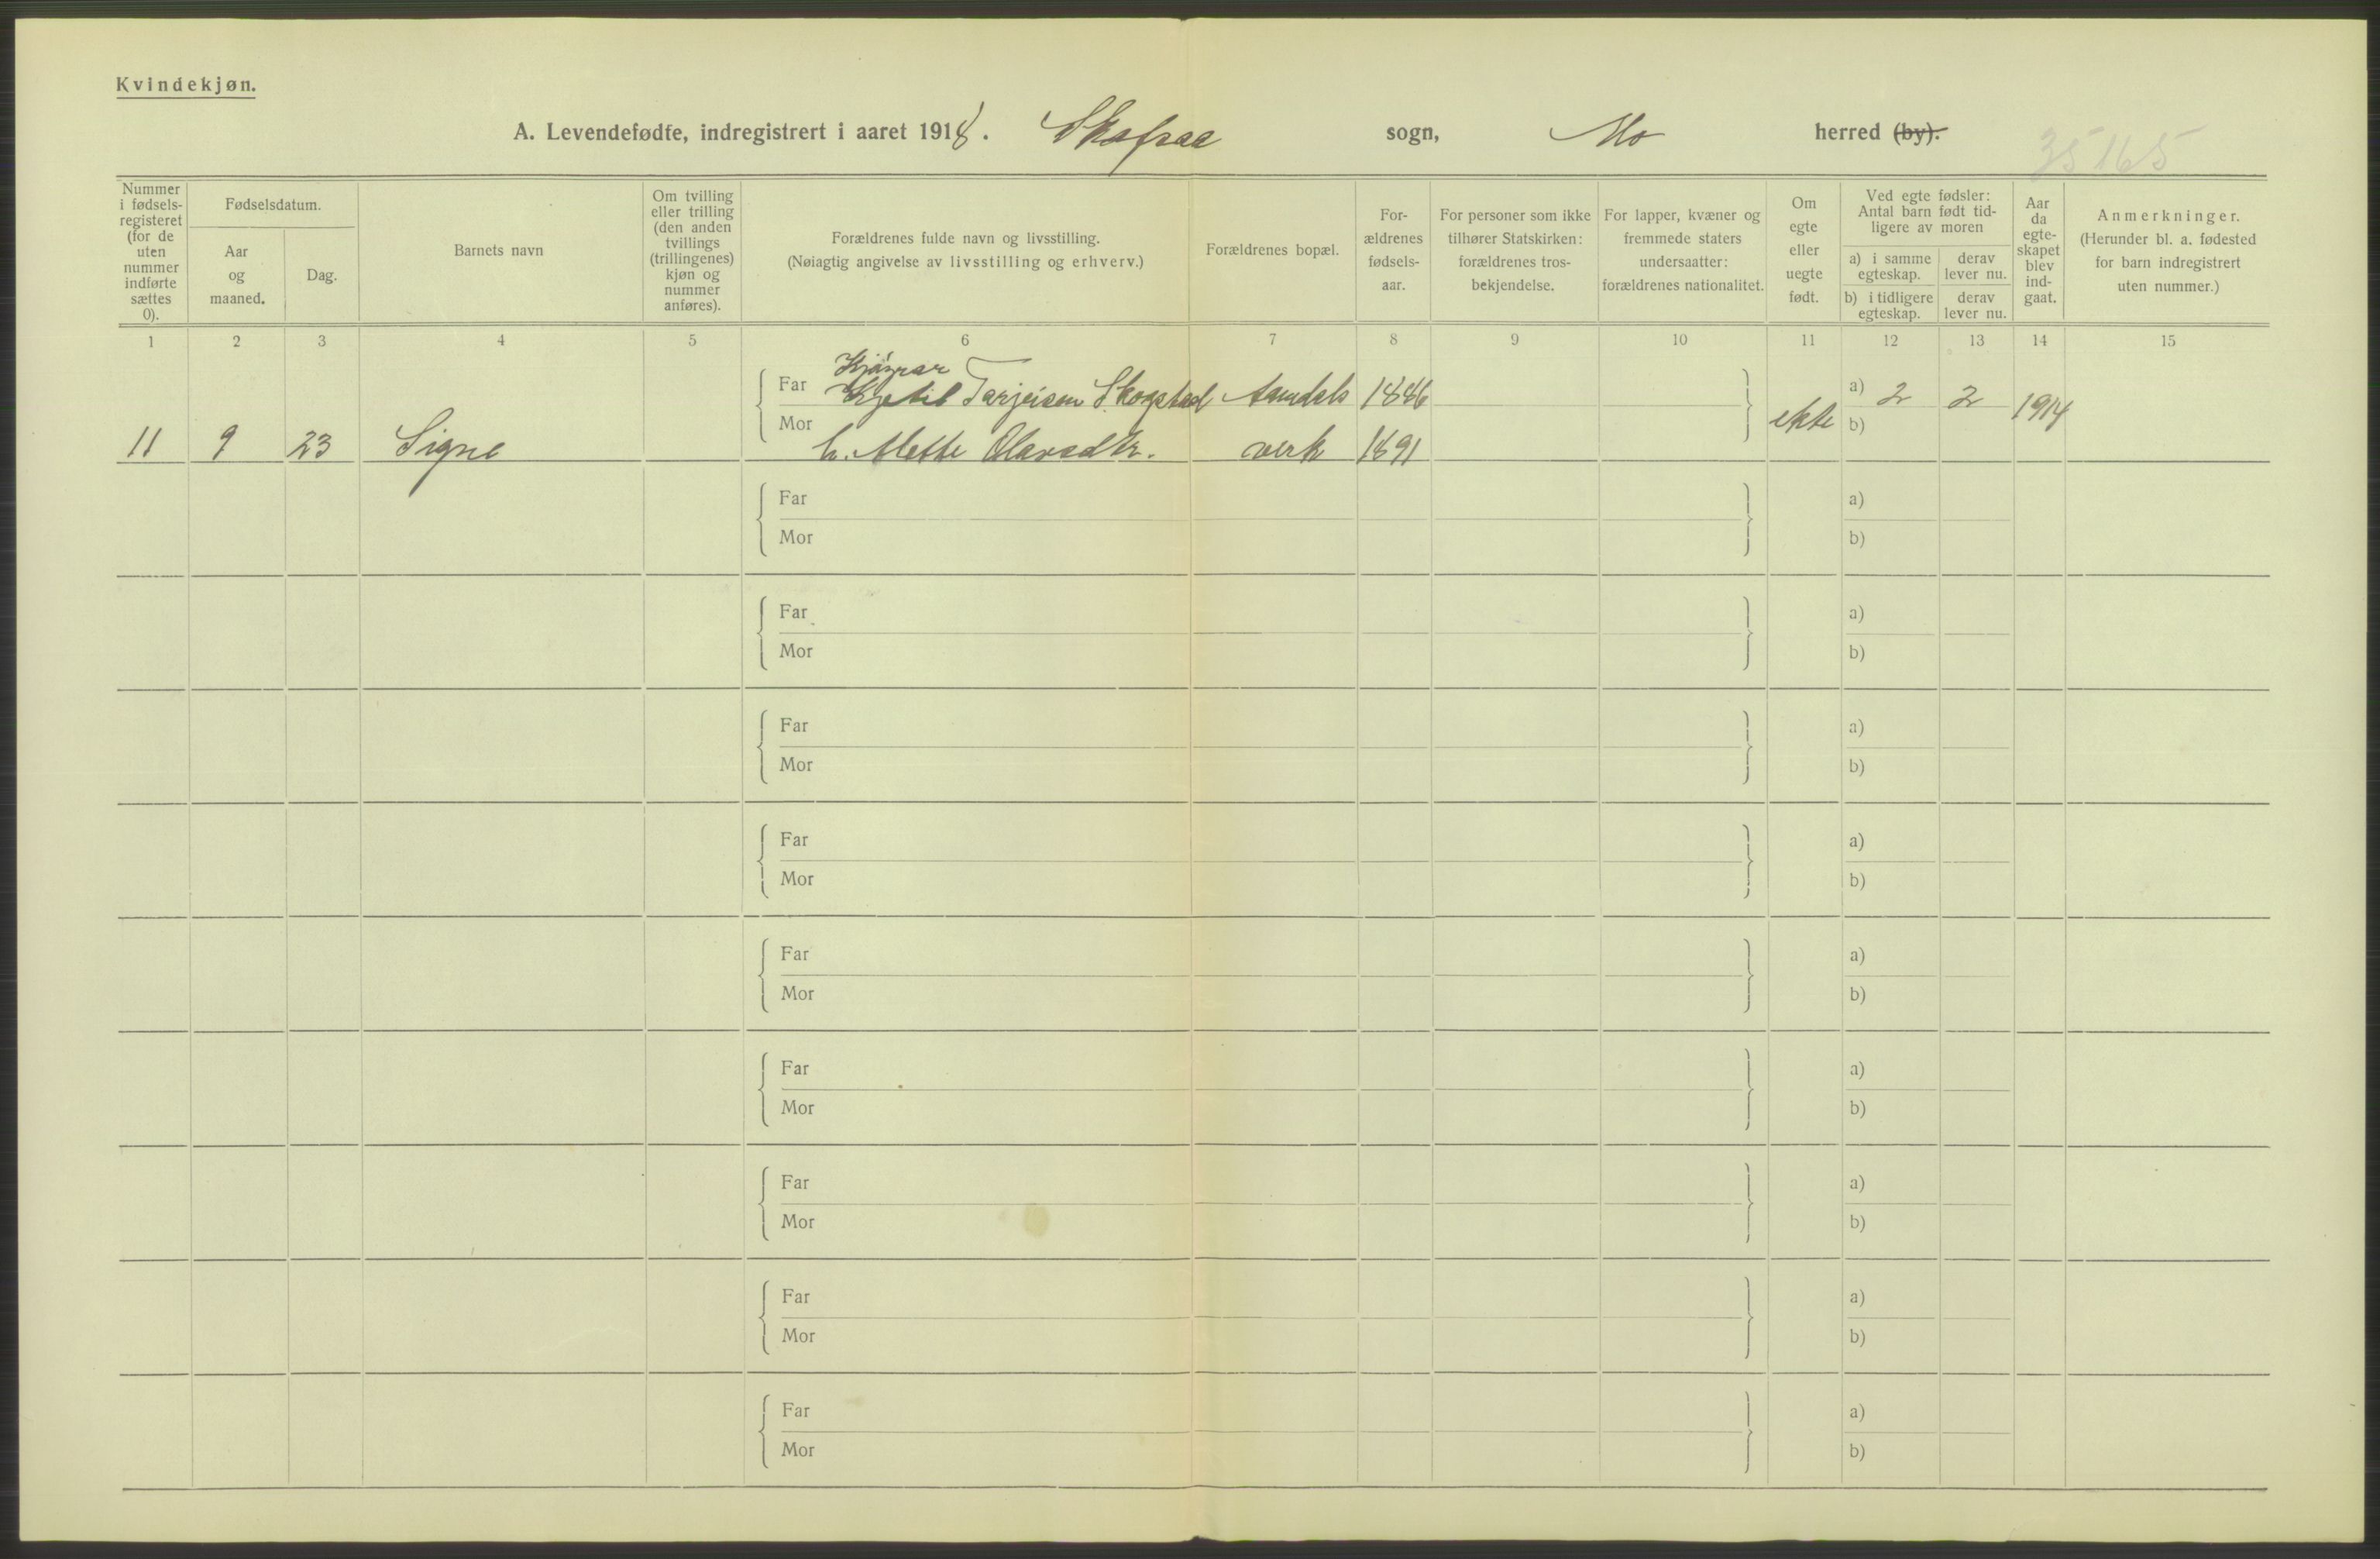 Kvindekjøn.
A. Levendefødte, indregistrert i aaret 1918. Skafsaa sogn, Mo herred (by).
35165
Nummer i fødsels-registeret (for de uten nummer indførte sættes 0).
Fødselsdatum.
Aar og maaned.
Dag.
Barnets navn
Om tvilling eller trilling (den anden tvillings (trillingenes) kjøn og nummer anføres).
Forældrenes fulde navn og livsstilling.
(Nøiagtig angivelse av livsstilling og erhverv.)
Forældrenes bopæl.
For-ældrenes fødsels-aar.
For personer som ikke tilhører Statskirken: forældrenes tros-bekjendelse.
For lapper, kvæner og fremmede staters undersaatter: forældrenes nationalitet.
Om egte eller uegte født.
Ved egte fødsler: Antal barn født tid-ligere av moren
a) i samme egteskap.
derav lever nu.
b) i tidligere egteskap.
derav lever nu.
Aar da egte-skapet blev ind-gaat.
Anmerkninger.
(Herunder bl. a. fødested for barn indregistrert uten nummer.)
1 2 3 4 5 6 7 8 9 10 11 12 13 14 15
Far Kjetil Tarjeisen Skogstad Aamdals 1886 a) 2 2
11 9 23 Signe Mor h. Mette Olavsdtr. verk 1891 ekte b) 1914
Far a)
Mor b)
Far a)
Mor b)
Far a)
Mor b)
Far a)
Mor b)
Far a)
Mor b)
Far a)
Mor b)
Far a)
Mor b)
Far a)
Mor b)
Far a)
Mor b)